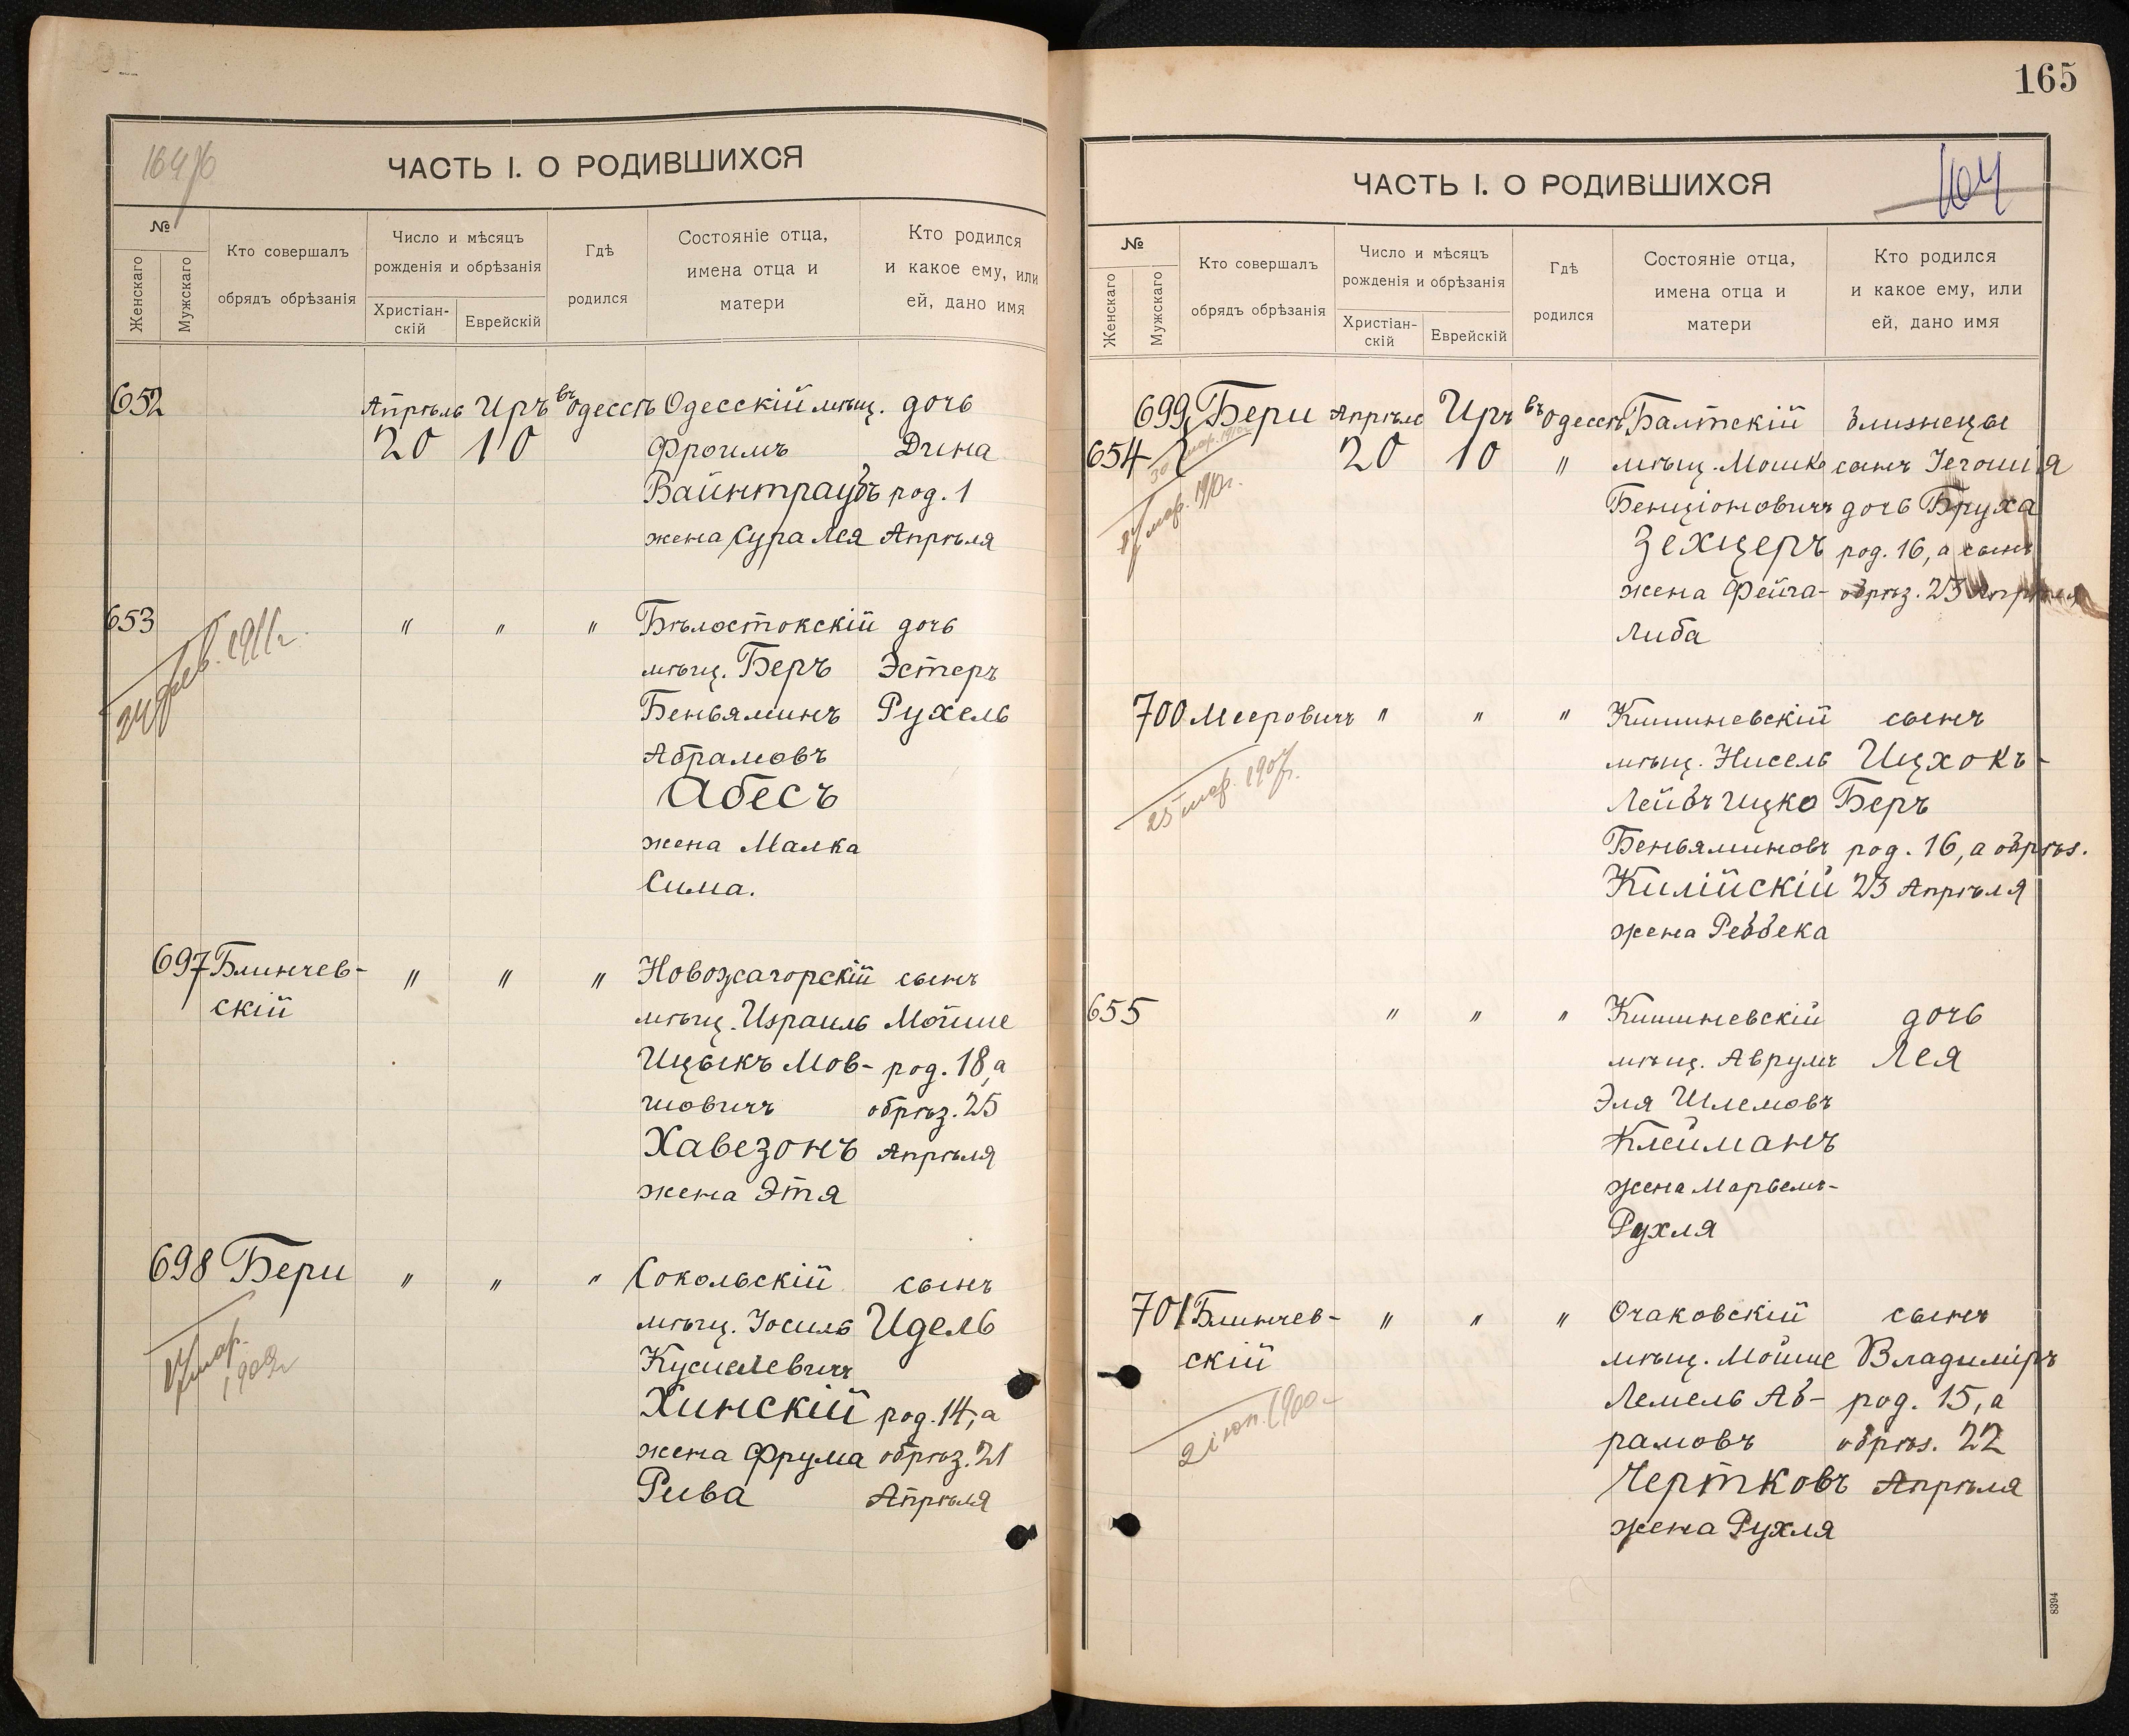 164 об
ЧАСТЬ I. О РОДИВШИХСЯ
№
Женскаго
Мужскаго
Кто совершалъ
обрядъ обрѣзанія
Число и мѣсяцъ
рожденія и обрѣзанія
Христіан-
скій
Еврейскій
Гдѣ
родился
Состояніе отца,
имена отца и
матери
Кто родился
и какое ему, или
ей, дано имя
652 Апрѣль Иръ въ Одессѣ Одесскій мѣщ. дочь
20 10 Фроимъ Дина
Вайнтраубъ род. 1
жена Сура Лея Апрѣля
653 " " " Бѣлостокскій дочь
24 фев. 1911 г.
мѣщ. Беръ Эстеръ
Беньяминъ Рухель
Абрамовъ
Абесъ
жена Малка
Сима.
697 Блинчев- " " " Новожагорскій сынъ
скій мѣщ. Израиль Мойше
Ицыкъ Мов- род. 18, а
шовичъ обрѣз. 25
Хавезонъ Апрѣля
жена Этя
698 Бери " " " Сокольскій сынъ
17 мар.
1909 г
мѣщ. Іосиль Идель
Кусиелевичъ
Хинскій род. 14, а
жена Фрума обрѣз. 21
Рива Апрѣля
165
ЧАСТЬ I. О РОДИВШИХСЯ
164
№
Женскаго
Мужскаго
Кто совершалъ
обрядъ обрѣзанія
Число и мѣсяцъ
рожденія и обрѣзанія
Христіан-
скій
Еврейскій
Гдѣ
родился
Состояніе отца,
имена отца и
матери
Кто родился
и какое ему, или
ей, дано имя
699 Бери Апрѣль Иръ въ Одессѣ Балтскій близнецы
654 20 10 " мѣщ. Мошко сынъ Іегошія
30 мар. 1910 г.
17 мар. 1910 г.
Бенціоновичъ дочь Бруха
Зехцеръ род. 16, а сынъ
жена Фейга- обрѣз. 23 Апрѣля
Либа
700 Мееровичъ " " " Кишиневскій сынъ
25 мар. 1907 г.
мѣщ. Нисель Ицхокъ-
Лейбъ Ицко Беръ
Беньяминовъ род. 16, а обрѣз.
Килійскій 23 Апрѣля
жена Реввека
655 " " " Кишиневскій дочь
мѣщ. Аврумъ Лея
Эля Шлемовъ
Клейманъ
жена Марьемъ-
Рухля
701 Блинчев- " " " Очаковскій сынъ
скій мѣщ. Мойше Владиміръ
2 іюн. 1900 г
Лемель Аб- род. 15, а
рамовъ обрѣз. 22
Чертковъ Апрѣля
жена Рухля
8394